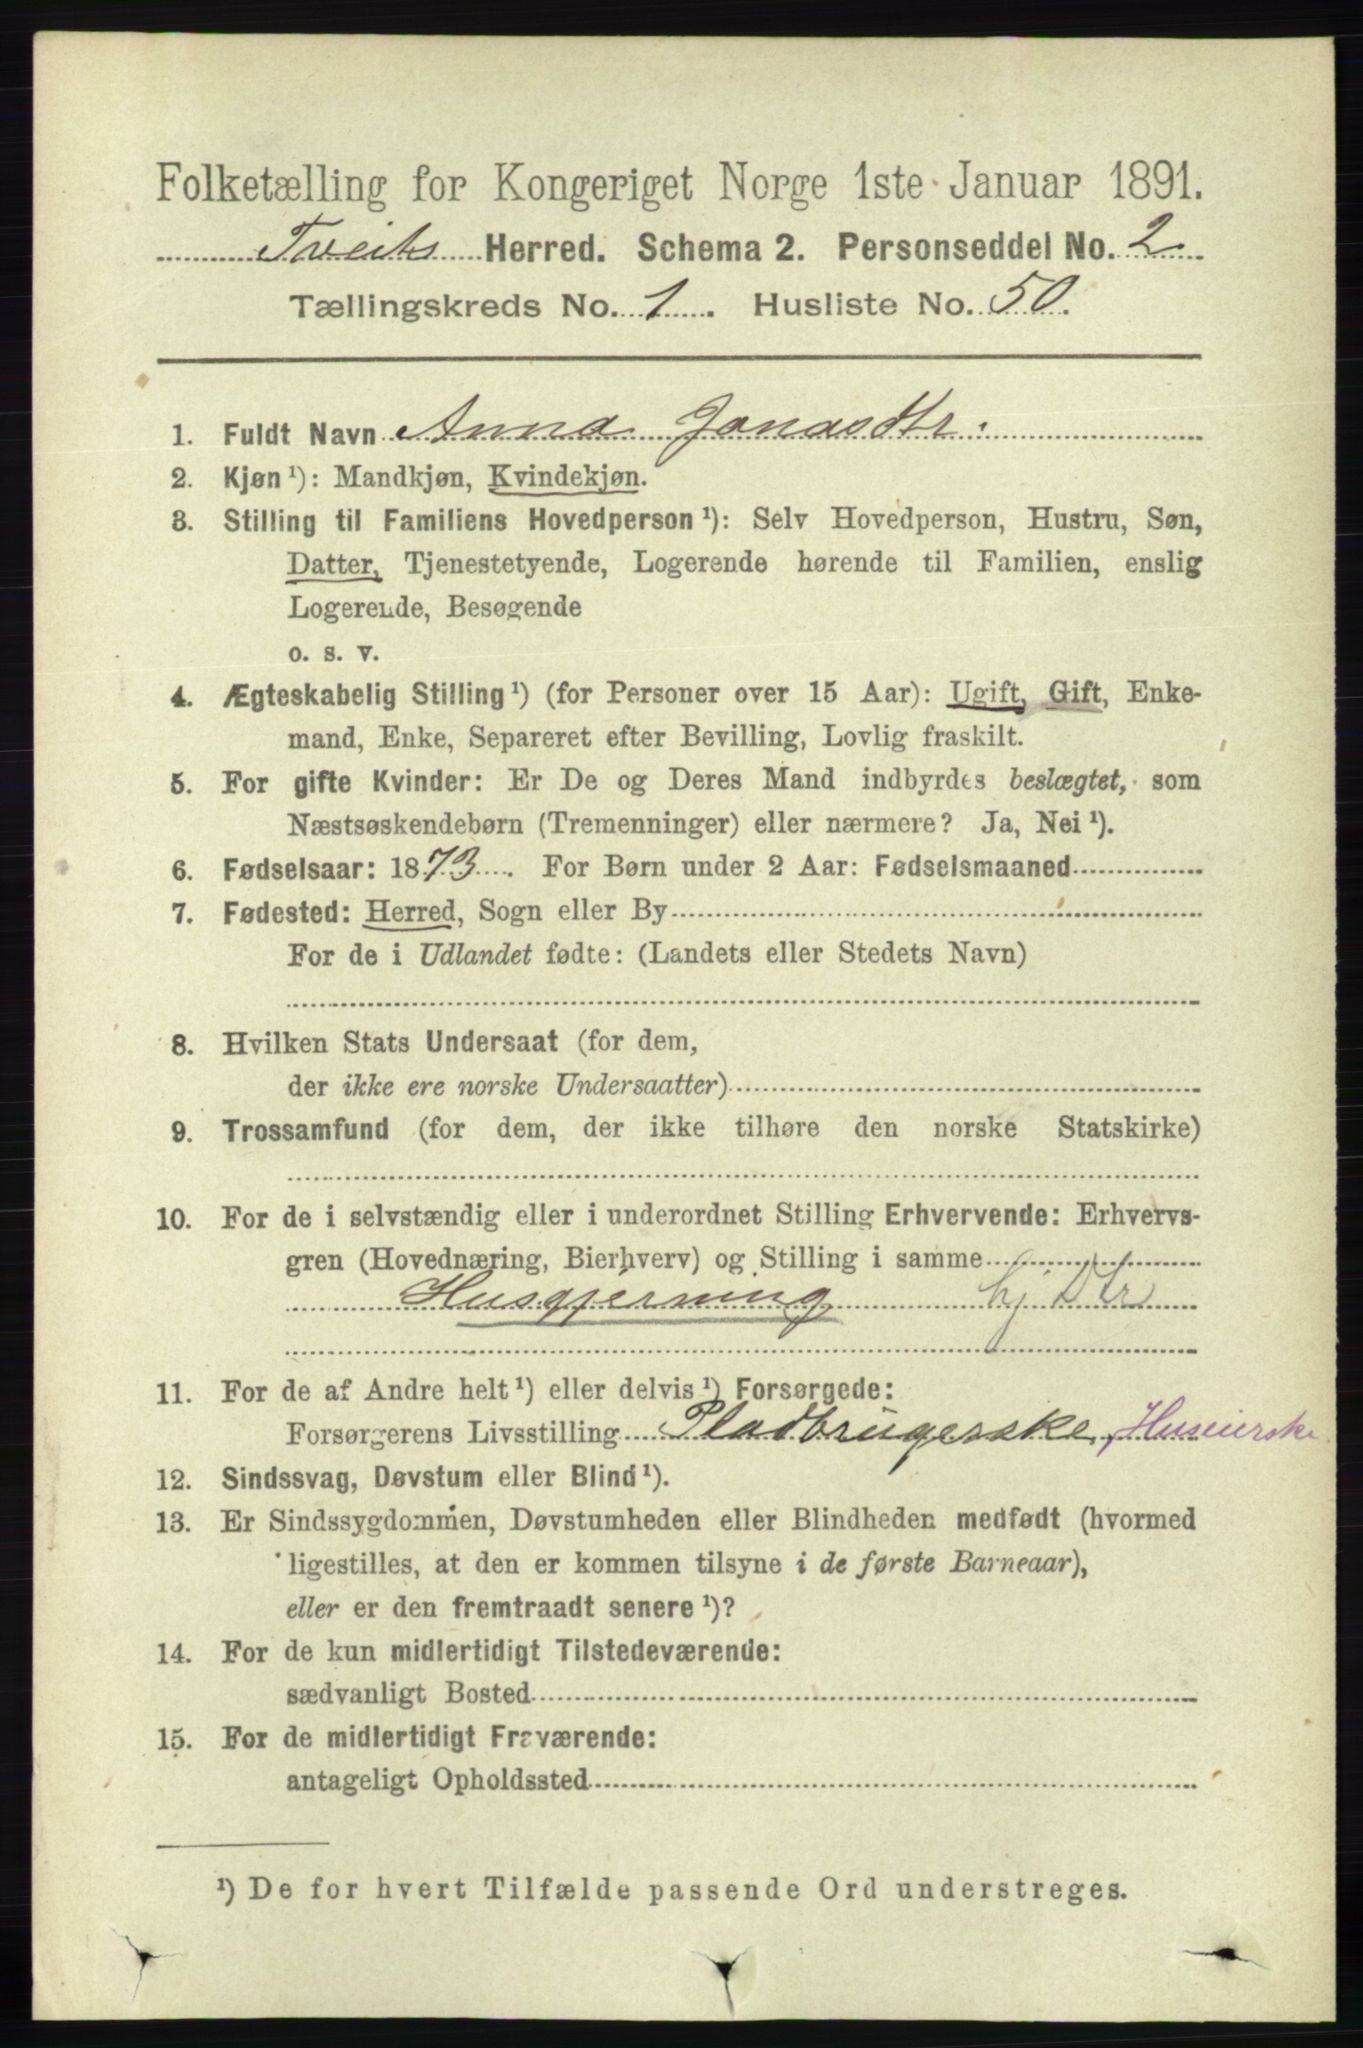 Folketælling for Kongeriget Norge 1ste Januar 1891.
Tveits Herred. Schema 2. Personseddel No. 2
Tællingskreds No. 1. Husliste No. 50.
1. Fuldt Navn Anna Jonasdtr.
2. Kjøn ¹): Mandkjøn, Kvindekjøn.
3. Stilling til Familiens Hovedperson ¹): Selv Hovedperson, Hustru, Søn,
Datter, Tjenestetyende, Logerende hørende til Familien, enslig
Logerende, Besøgende
o. s. v.
4. Ægteskabelig Stilling ¹) (for Personer over 15 Aar): Ugift, Gift, Enke-
mand, Enke, Separeret efter Bevilling, Lovlig fraskilt.
5. For gifte Kvinder: Er De og Deres Mand indbyrdes beslægtet, som
Næstsøskendebørn (Tremenninger) eller nærmere? Ja, Nei ¹).
6. Fødselsaar: 1873. For Børn under 2 Aar: Fødselsmaaned
7. Fødested: Herred, Sogn eller By
For de i Udlandet fødte: (Landets eller Stedets Navn)
8. Hvilken Stats Undersaat (for dem,
der ikke ere norske Undersaatter)
9. Trossamfund (for dem, der ikke tilhøre den norske Statskirke)
10. For de i selvstændig eller i underordnet Stilling Erhvervende: Erhvervs-
gren (Hovednæring, Bierhverv) og Stilling i samme
Husgjerning hj Dtr
11. For de af Andre helt ¹) eller delvis ¹) Forsørgede:
Forsørgerens Livsstilling Pladbrugerske, Huseierske
12. Sindssvag, Døvstum eller Blind ¹).
13. Er Sindssygdommen, Døvstumheden eller Blindheden medfødt (hvormed
ligestilles, at den er kommen tilsyne i de første Barneaar),
eller er den fremtraadt senere ¹)?
14. For de kun midlertidigt Tilstedeværende:
sædvanligt Bosted
15. For de midlertidigt Fraværende:
antageligt Opholdssted
¹) De for hvert Tilfælde passende Ord understreges.